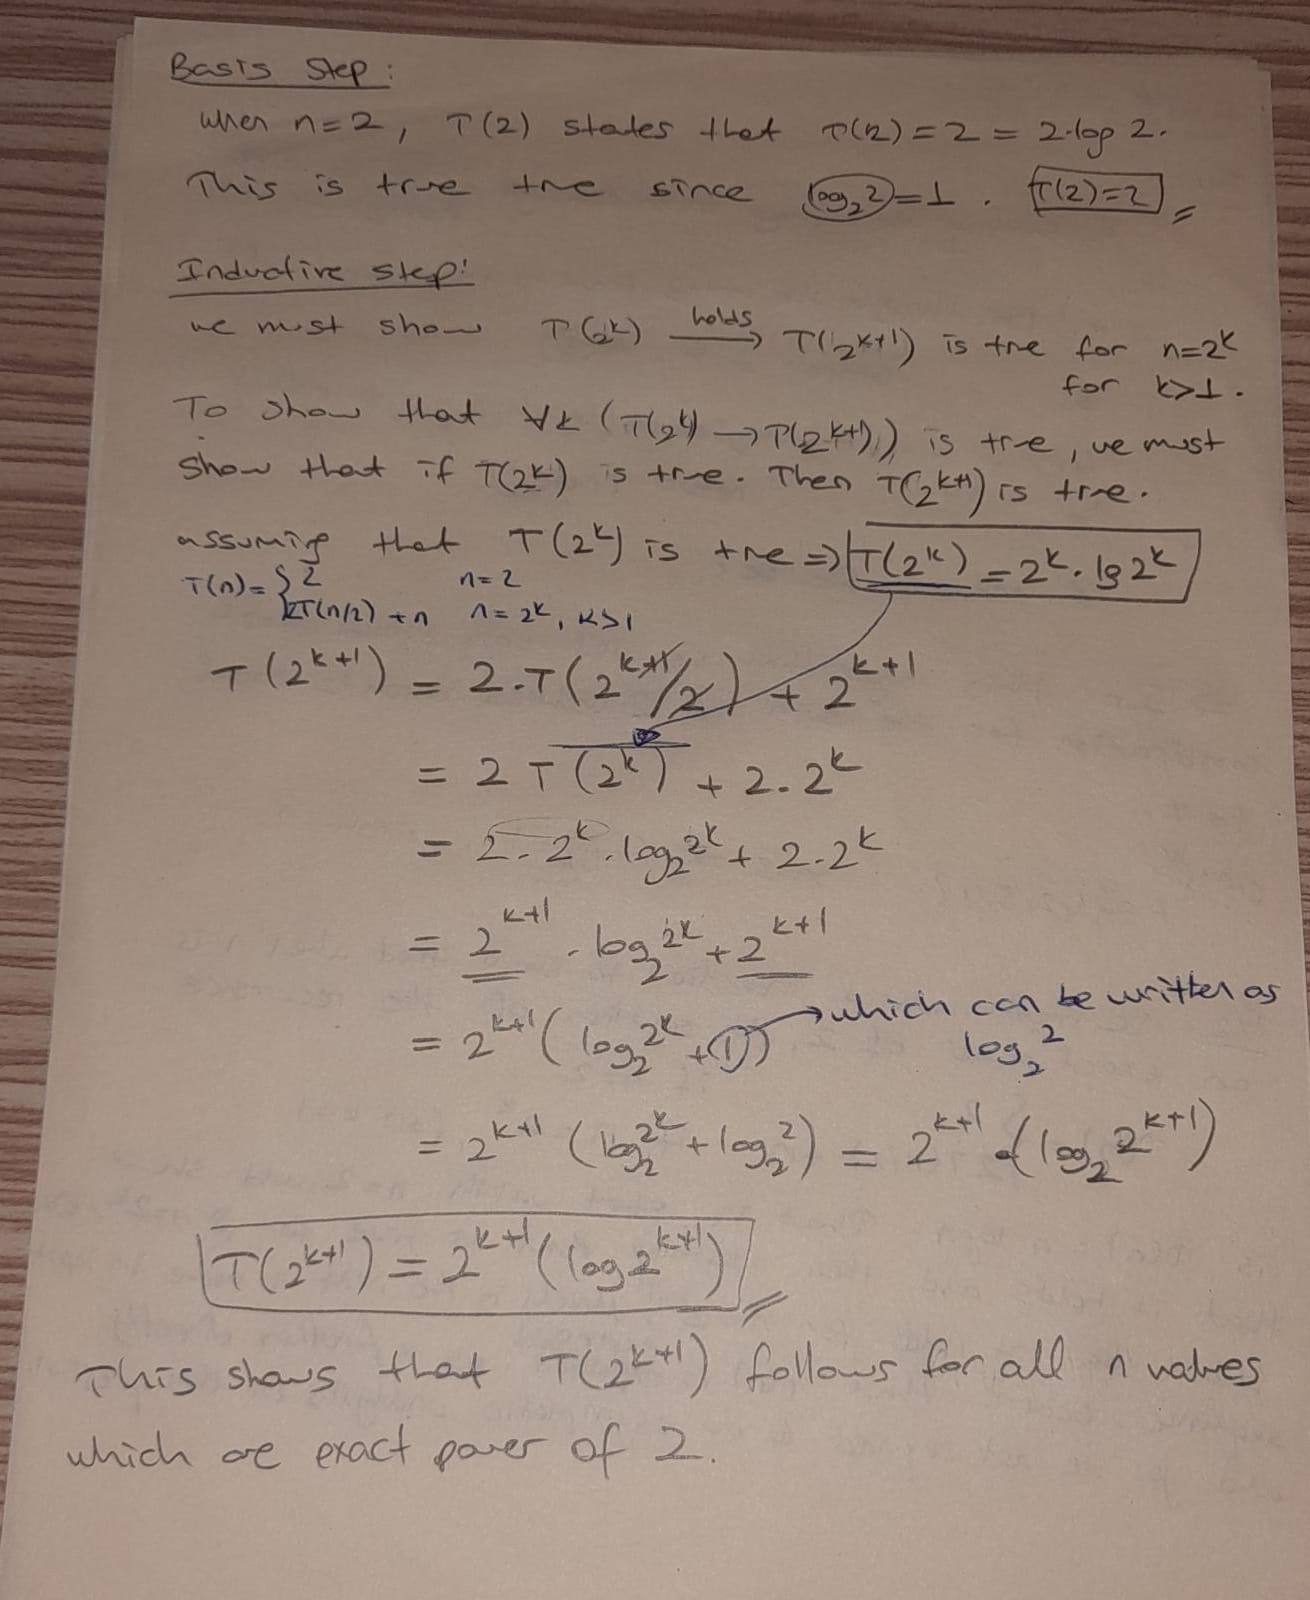 Basis Step:
when n=2, T(2) states that T(2) = 2 = 2·log 2.
This is true tne since log₂2 = 1. T(2)=2
Inductive step:
we must show T(2ᵏ) holds→ T(2ᵏ⁺¹) is tne for n=2ᵏ
for k>1.
To show that ∀k (T(2ᵏ) → T(2ᵏ⁺¹)) is true, we must
show that if T(2ᵏ) is true. Then T(2ᵏ⁺¹) is true.
assuming that T(2ᵏ) is tne ⇒ T(2ᵏ) = 2ᵏ. lg 2ᵏ
T(n) = { 2 n=2
2T(n/2) + n n = 2ᵏ, k>1
T(2ᵏ⁺¹) = 2.T(2ᵏ⁺¹/2) + 2ᵏ⁺¹
= 2 T(2ᵏ) + 2.2ᵏ
= 2.2ᵏ.log₂2ᵏ + 2.2ᵏ
= 2ᵏ⁺¹ . log₂2ᵏ + 2ᵏ⁺¹
= 2ᵏ⁺¹ (log₂2ᵏ + 1) → which can be written as
log₂2
= 2ᵏ⁺¹ (log₂2ᵏ + log₂2) = 2ᵏ⁺¹ . (log₂2ᵏ⁺¹)
T(2ᵏ⁺¹) = 2ᵏ⁺¹ (log 2ᵏ⁺¹)
This shows that T(2ᵏ⁺¹) follows for all n values
which are exact power of 2.